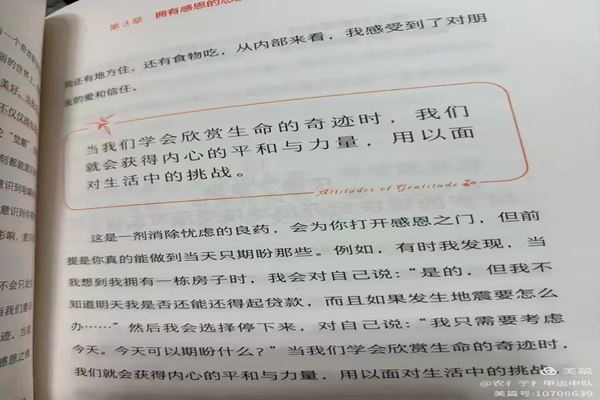 第3章 拥有感恩的
我还有地方住，还有食物吃，从内部来看，我感受到了对朋
友的爱和信任。
当我们学会欣赏生命的奇迹时，我们
就会获得内心的平和与力量，用以面
对生活中的挑战。
Attitudes of Gratitude
这是一剂消除忧虑的良药，会为你打开感恩之门，但前
提是你真的能做到当天只期盼那些。例如，有时我发现，当
我想到我拥有一栋房子时，我会对自己说：“是的，但我不
知道明天我是否还能还得起贷款，而且如果发生地震要怎么
办……”然后我会选择停下来，对自己说：“我只需要考虑
今天。今天可以期盼什么？”当我们学会欣赏生命的奇迹时，
我们就会获得内心的平和与力量，用以面对生活中的挑战
一个奇
的世界
美好。
不仅仅
“觉醒”
刻都能
意识到
意识到
影响，意
不会只
当我们
迹、当
感恩之
美篇
美篇号:10708639